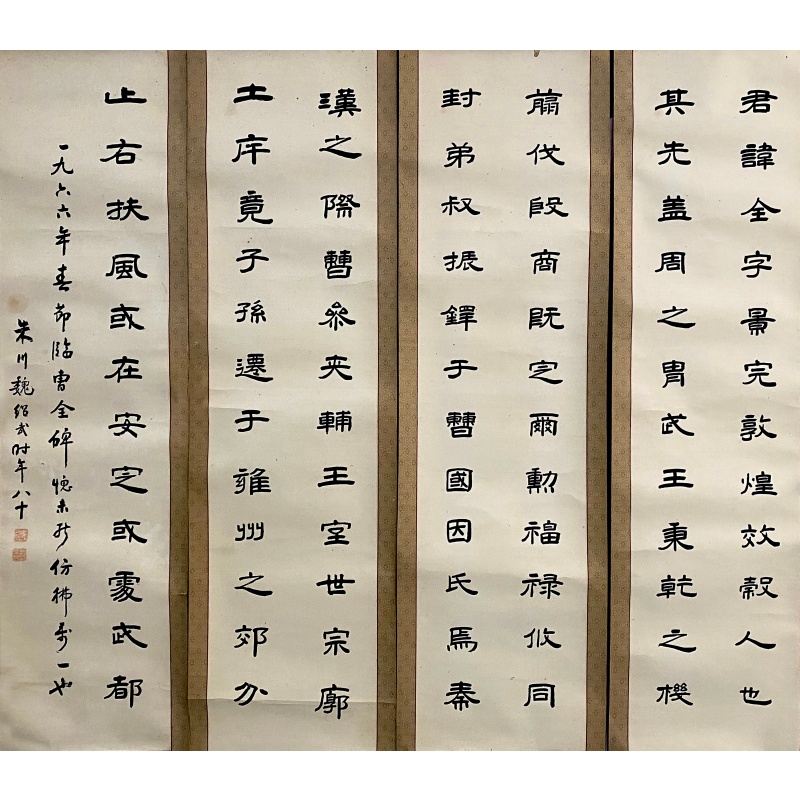 君諱全字景完敦煌效穀人也
其先蓋周之胄武王秉乾之機
翦伐殷商既定爾勳福祿攸同
封弟叔振鐸于曹國因氏焉秦
漢之際曹參夾輔王室世宗廓
土斥竟子孫遷于雍州之郊分
止右扶風或在安定或處武都
一九六六年春節臨曹全碑愧未能仿彿萬一也
米川魏紹武时年八十